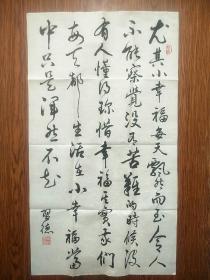 尤其小幸福每天飘然而至令人
不能察觉没有苦难的时候没
有人懂得珍惜幸福其实我们
每天都生活在小幸福当
中只是浑然不知